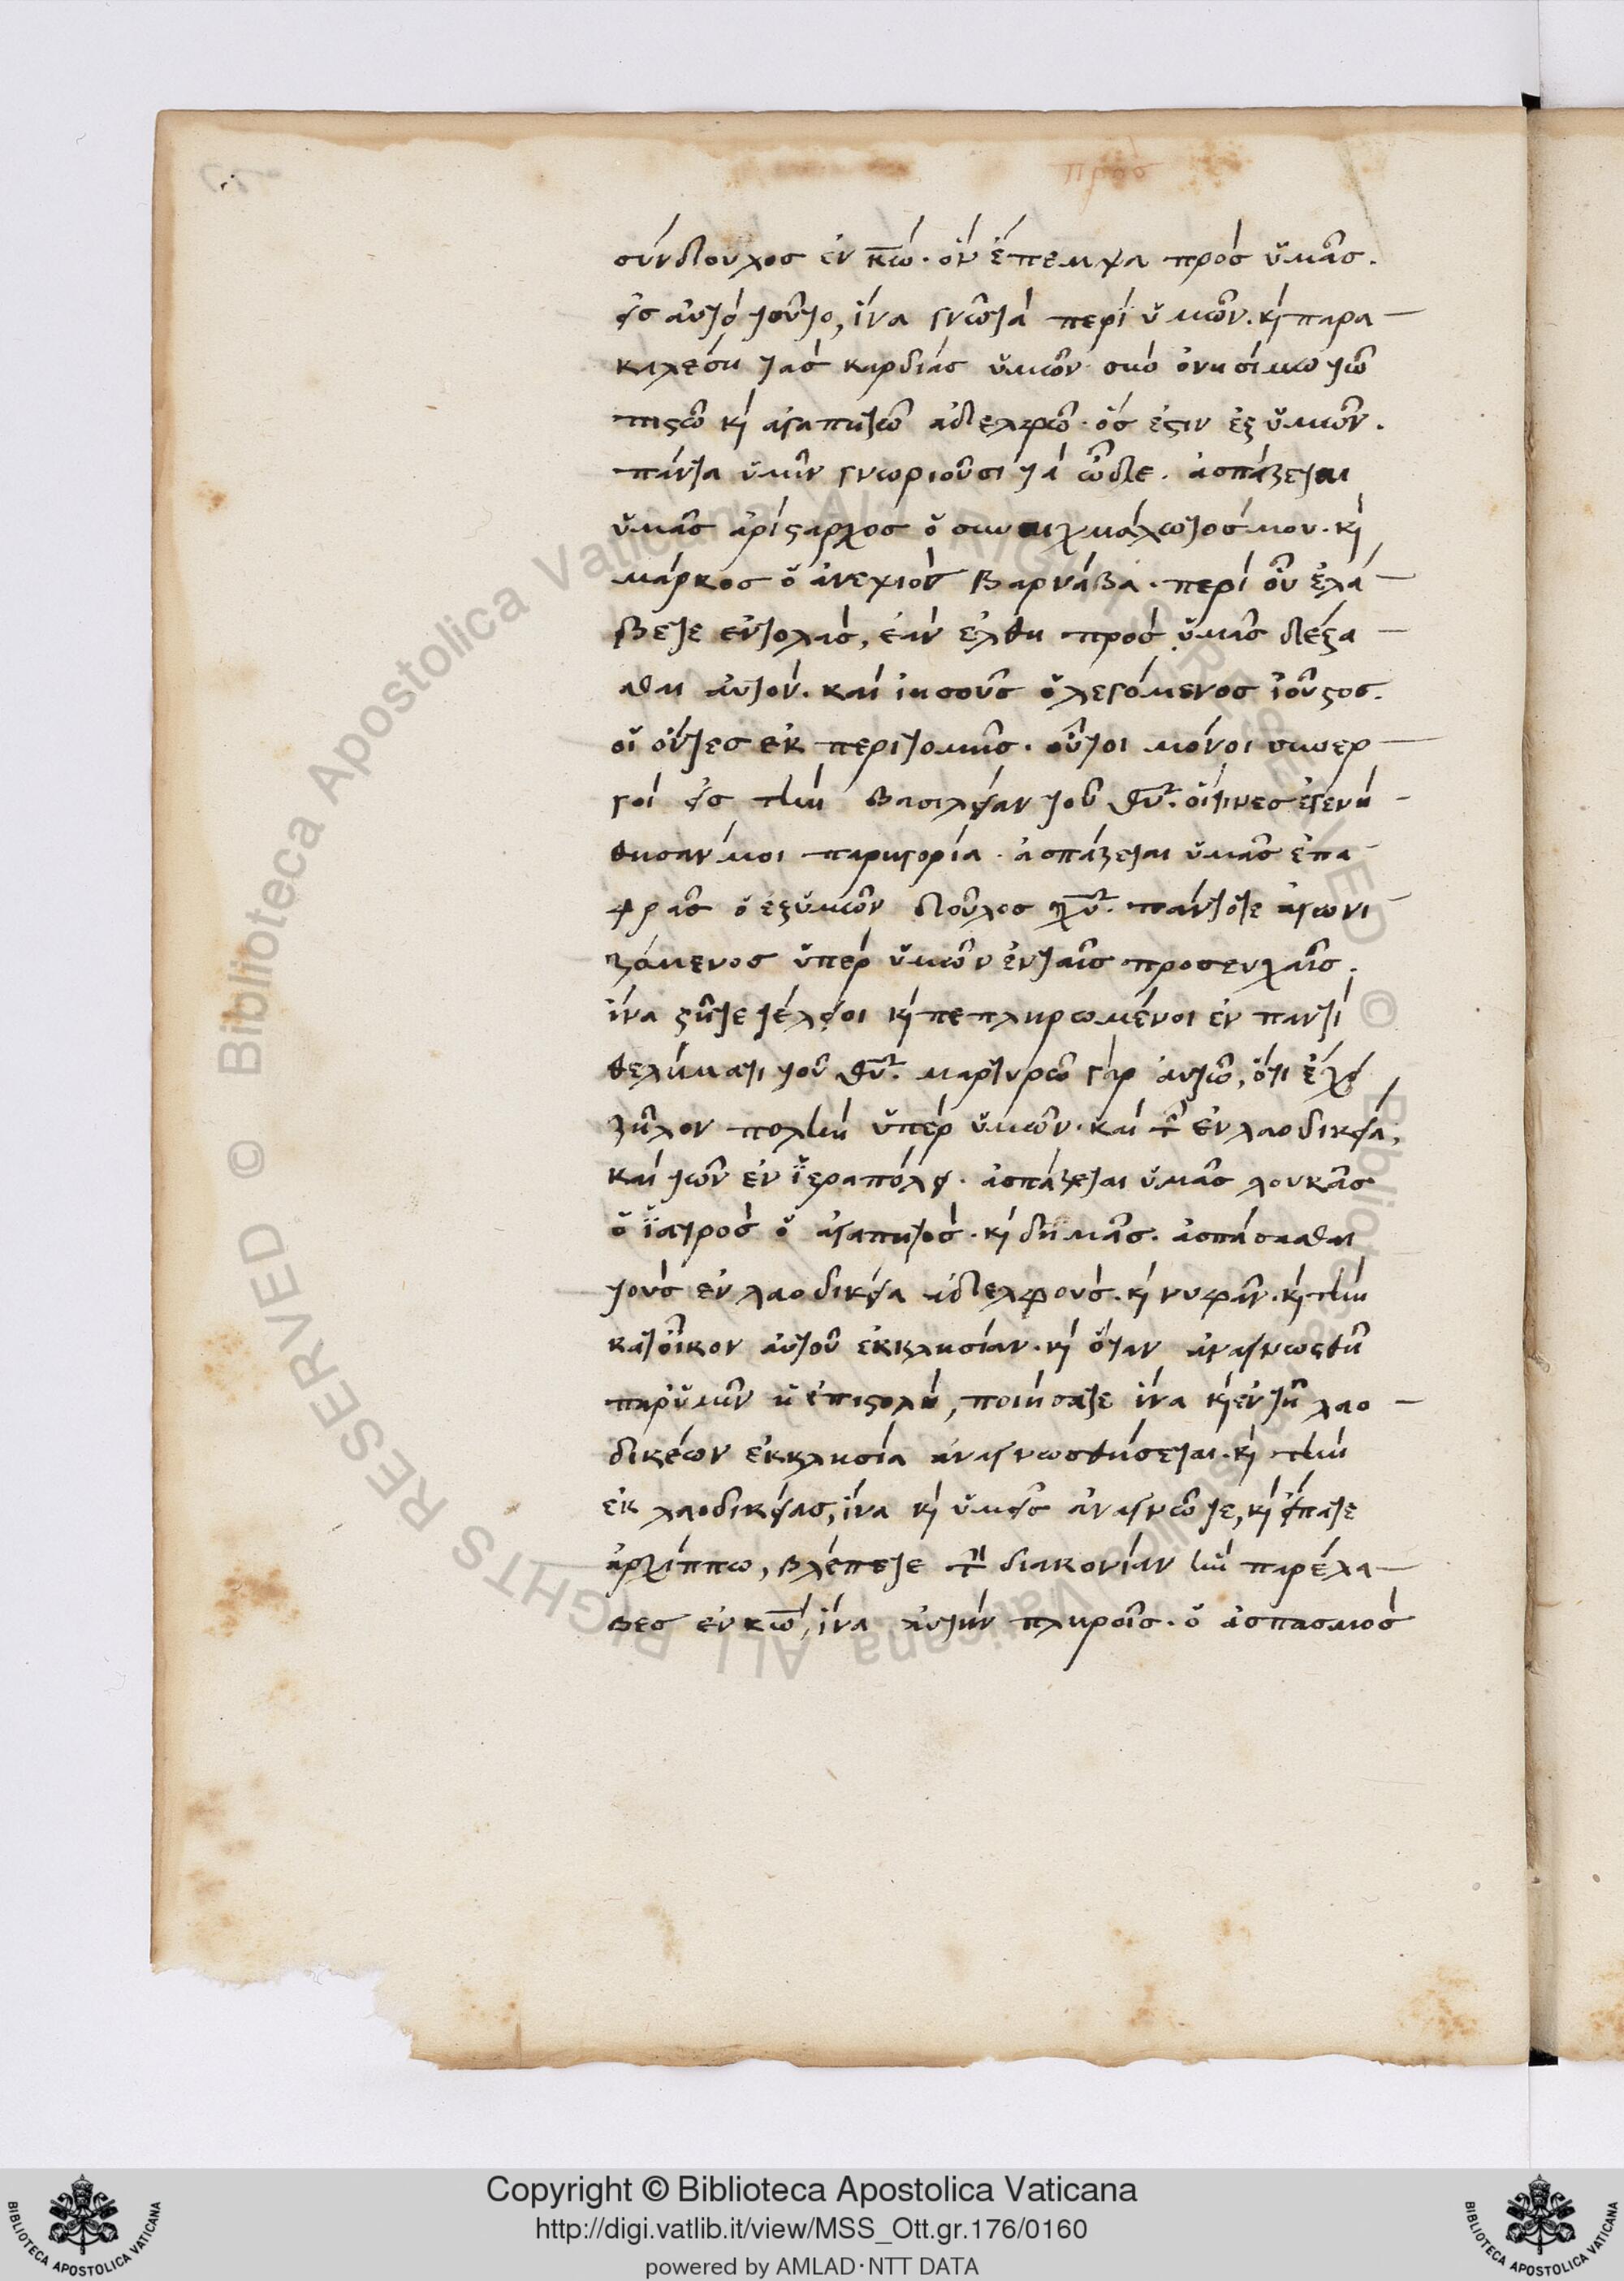 πρὸς
σύνδουλος ἐν κω̅. ὃν ἔπεμψα πρὸς ὑμᾶς.
εἰς αὐτὸ τοῦτο, ἵνα γνῶτὰ περὶ ὑμῶν. κὶ παρα
καλέση τὰς καρδίας ὑμῶν σὺν ὀνησίμω τῶ
πιστῶ κὶ ἀγαπητῶ ἀδελφῶ. ὅς ἐστιν ἐξ ὑμῶν.
πάντα ὑμῖν γνωριοῦσι τὰ ὧδε. ἀσπάζεται
ὑμᾶς ἀρίσταρχος ὁ συναιχμάλωτοσ μου. κὶ
μάρκος ὁ ἀνεψιὸς βαρνάβα. περὶ οὗ ἐλά
βετε ἐντολὰς, ἐὰν ἔλθη πρὸς ὑμᾶς δέξα
σθαι αὐτόν. καὶ ἰησοῦς ὁ λεγόμενος ἰοῦστος.
οἱ ὄντες ἐκ περιτομῆς. οὗτοι μόνοι συνερ
γοὶ εἰς τὴν βασιλείαν τοῦ θυ̅. οἵτινες ἐγενή
θησάν μοι παρηγορία. ἀσπάζεται ὑμᾶς ἐπα
φρᾶς ὁ ἐξ ὑμῶν δοῦλος χυ̅. πάντοτε ἀγωνι
ζόμενος ὑπὲρ ὑμῶν ἐν ταῖς προσευχαῖς.
ἵνα στῆτε τέλειοι κὶ πεπληρωμένοι ἐν παντὶ
θελήματι τοῦ θυ̅. μαρτυρῶ γὰρ αὐτῶ, ὅτι ἔχει
ζῆλον πολὺν ὑπὲρ ὑμῶν. καὶ τῶν ἐν λαοδικεία,
καὶ τῶν ἐν ἱεραπόλει. ἀσπάζεται ὑμᾶς λουκᾶς
ὁ ἰατρὸς ὁ ἀγαπητὸς. κὶ δημᾶς. ἀσπάσασθαι
τοὺς ἐν λαοδικεία ἀδελφούς. κὶ νυμφᾶν. κὶ τὴν
κατ οἶκον αὐτοῦ ἐκκλησίαν. κὶ ὅταν ἀναγνωσθῆ
παρ ὑμῖν ἡ ἐπιστολὴ, ποιήσατε ἵνα κὶ ἐν τῆ λαο
δικέων ἐκκλησία ἀναγνωσθήσεται. κὶ τὴν
ἐκ λαοδικείας, ἵνα κὶ ὑμεῖς ἀναγνῶτε, κὶ εἴπατε
ἀρχίππω, βλέπετε τὴν διακονίαν ἣν παρέλα
βες ἐν κω̅, ἵνα αὐτὴν πληροῖς. ὁ ἀσπασμὸς
Copyright © Biblioteca Apostolica Vaticana
http://digi.vatlib.it/view/MSS_Ott.gr.176/0160
powered by AMLAD·NTT DATA